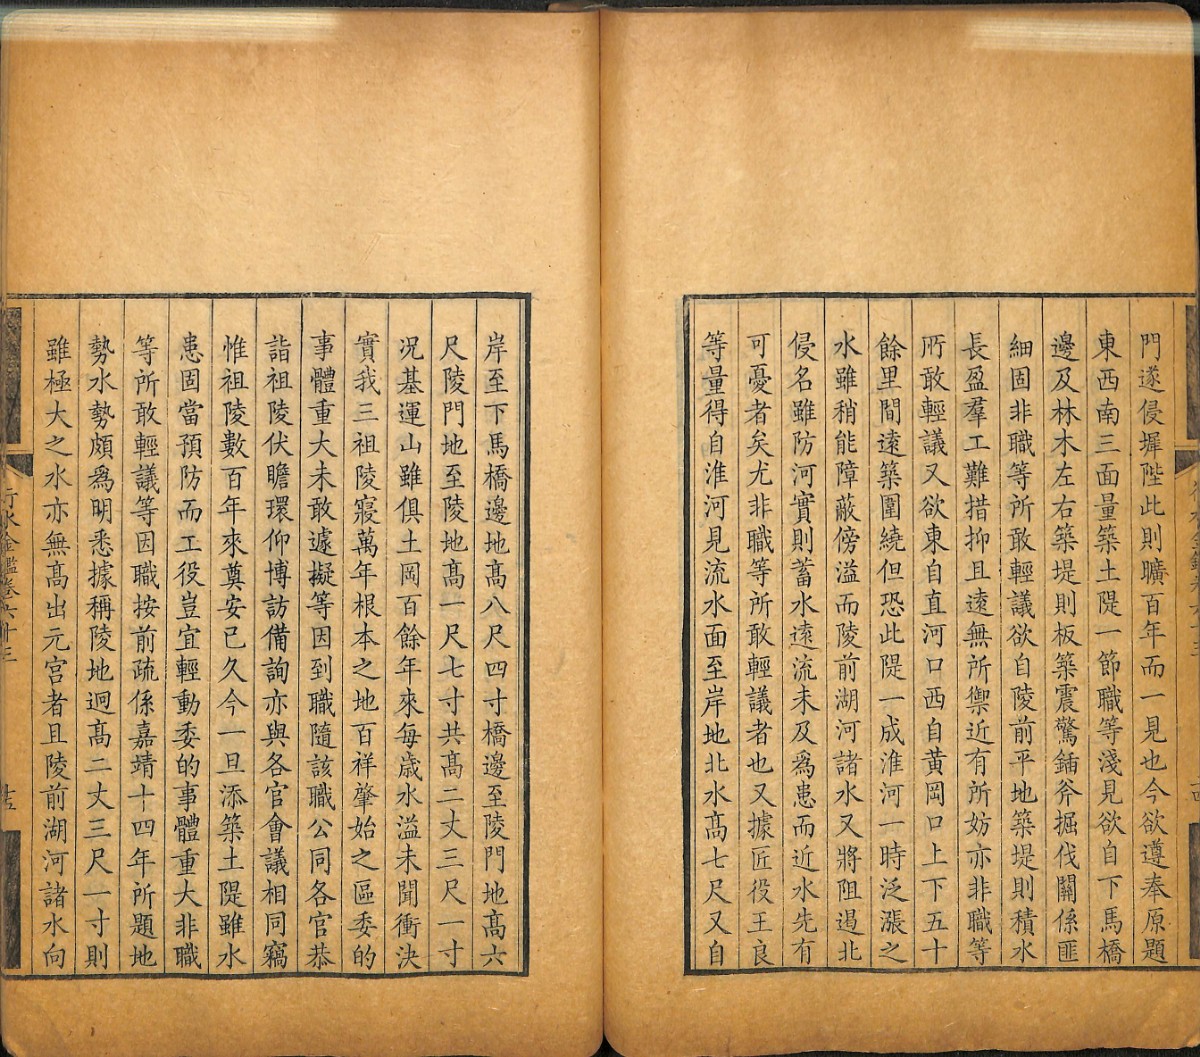 門遂侵墀陛此則曠百年而一見也今欲遵奉原題
東西南三面量築土隄一節職等淺見欲自下馬橋
邊及林木左右築堤則板築震驚鍤斧掘伐關係匪
細固非職等所敢輕議欲自陵前平地築堤則積水
長盈羣工難措抑且遠無所禦近有所妨亦非職等
所敢輕議又欲東自直河口西自黃岡口上下五十
餘里間遠築圍繞但恐此隄一成淮河一時泛漲之
水雖稍能障蔽傍溢而陵前湖河諸水又將阻遏北
侵名雖防河實則蓄水遠流未及爲患而近水先有
可憂者矣尤非職等所敢輕議者也又據匠役王良
等量得自淮河見流水面至岸地北水高七尺又自
岸至下馬橋邊地高八尺四寸橋邊至陵門地高六
尺陵門地至陵地高一尺七寸共高二丈三尺一寸
况基運山雖俱土岡百餘年來每歲水溢未聞衝決
實我三祖陵寢萬年根本之地百祥肇始之區委的
事體重大未敢遽擬等因到職隨該職公同各官恭
詣祖陵伏瞻環仰博訪備詢亦與各官會議相同竊
惟祖陵數百年來奠安已久今一旦添築土隄雖水
患固當預防而工役豈宜輕動委的事體重大非職
等所敢輕議等因職按前疏係嘉靖十四年所題地
勢水勢頗爲明悉據稱陵地迥高二丈三尺一寸則
雖極大之水亦無高出元宮者且陵前湖河諸水向
行水金鑑卷六十三